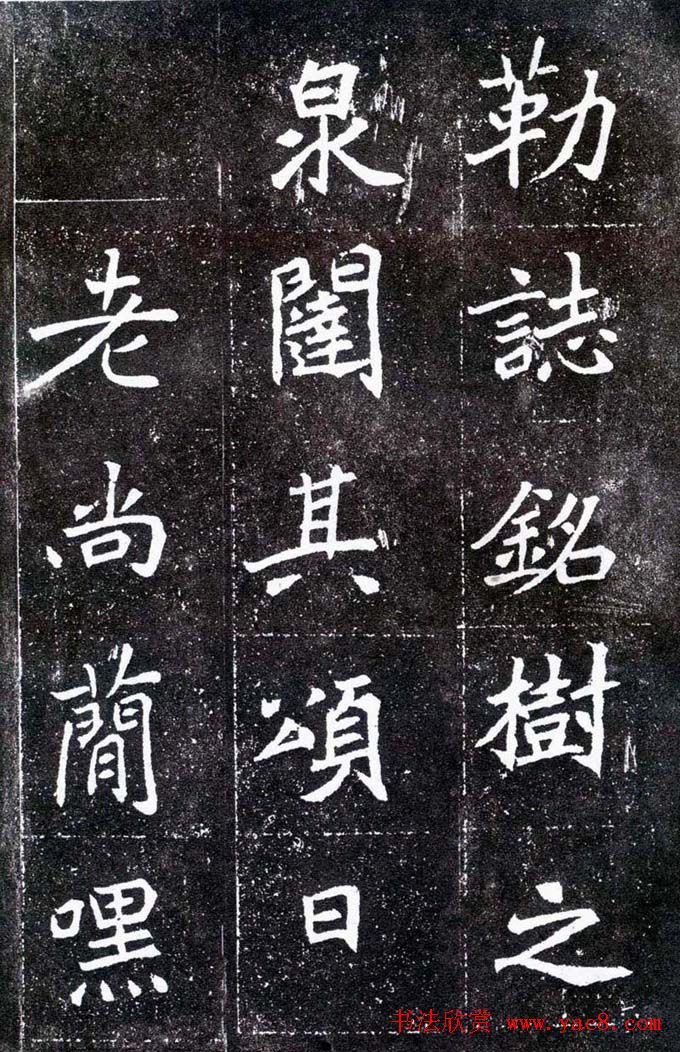 勒誌銘樹之
泉闥其頌曰
老尚蕳嘿
书法欣赏 www.yac8.com